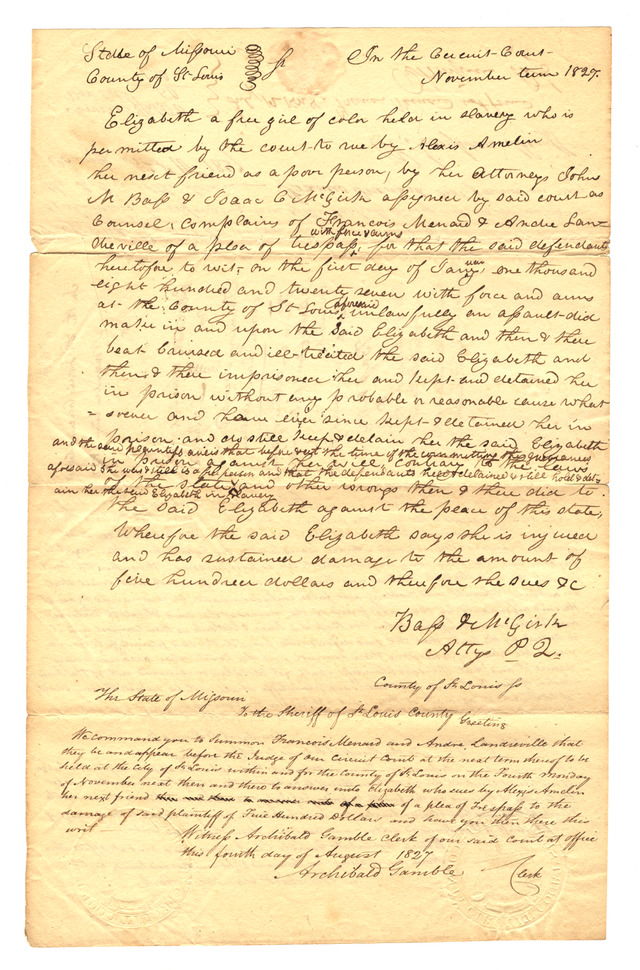 State of Missouri
County of St Louis
In the Circuit-Court-
November term 1827.
Elizabeth a free girl of color held in slavery who is
permitted by the court to sue by Alexis Amelin
her next friend as a poor person, by her Attorneys John
M Bass & Isaac C McGirk assigned by said court as
Counsel, complains of Francois Menard & Andre Lan-
with force & arms
dreville of a plea of trespass, for that the said defendants
heretofore to wit, on the first day of January one thousand
eight hundred and twenty seven with force and arms
aforesaid
at the County of St Louis unlawfully an assault did
make in and upon the said Elizabeth and then & there
beat bruised and ill-treated the said Elizabeth and
then & there imprisoned her and kept and detained her
in prison without any probable or reasonable cause what
= soever and have ever since kept & detained her in
prison and still keep & detain her the said Elizabeth
and the said plaintiff avers that before & at the time of the committing the grievances
in prison against her will, Contrary to the laws
aforesaid she was & still is a free person and that the defendants held & detained & still hold & det-
of the state and other wrongs then & there did to
ain her the said Elizabeth in Slavery
the said Elizabeth against the peace of this state,
Wherefore the said Elizabeth says she is injured
and has sustained damage to the amount of
five hundred dollars and therefore she sues &c
Bass & McGirk
Attys P. Q.
County of St Louis ss
The State of Missouri
To the Sheriff of St Louis County Greeting
We command you to Summon Francois Menard and Andre Landreville that
they be and appear before the Judge of our Circuit Court at the next term thereof to be
held at the City of St Louis within and for the County of St Louis on the Fourth Monday
of November next then and there to answer unto Elizabeth who sues by Alexis Amelin
her next friend of a plea of Trespass to the
damage of said plaintiff of Five Hundred Dollars and have you then there this
writ
Witness Archibald Gamble clerk of our said Court at office
this fourth day of August 1827
Archibald Gamble Clerk